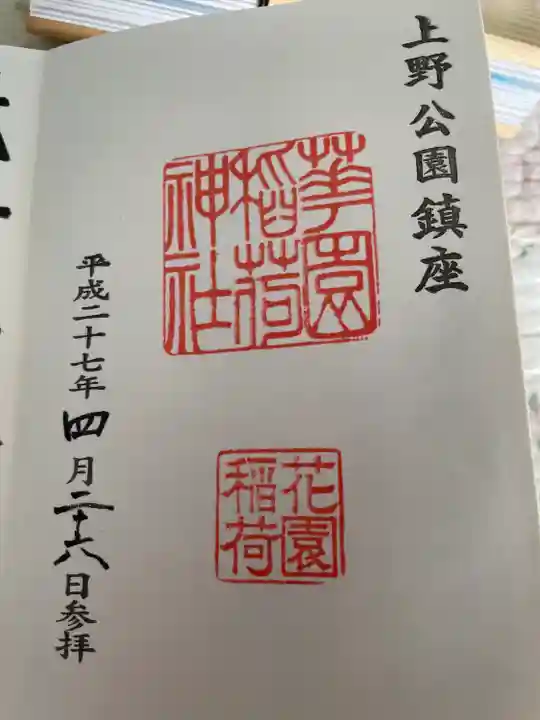 上野公園鎮座
華園
稲荷
神社
花園
稲荷
平成二十七年四月二十六日参拝